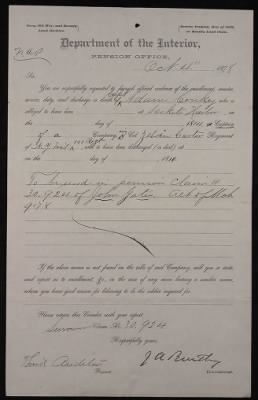 Department of the Interior,
PENSION OFFICE,
Oct 4" 1878
Sir:
You are respectfully requested to furnish official evidence of the enrollment, muster,
service, duty, and discharge or death of Adam Conkey who is
alleged to have been at Sackets Harbor
on the day of , 1814,
of a Company, Col. Regiment
of N.Y. Mil and to have been discharged (or died) at
on the day of , 18
To be used in pension claim #
30.924 of John Act of Mch
9. 78
If the above name is not found on the rolls of said Company, you will so state,
and report as to enrollment, &c., in the case of any man bearing a similar name,
whom you have good reason for believing to be the soldier inquired for.
Please return this Circular with your report.
Claim No. 30.924
Respectfully yours,
J A Bentley
Third Auditor
Present.
Commissioner.